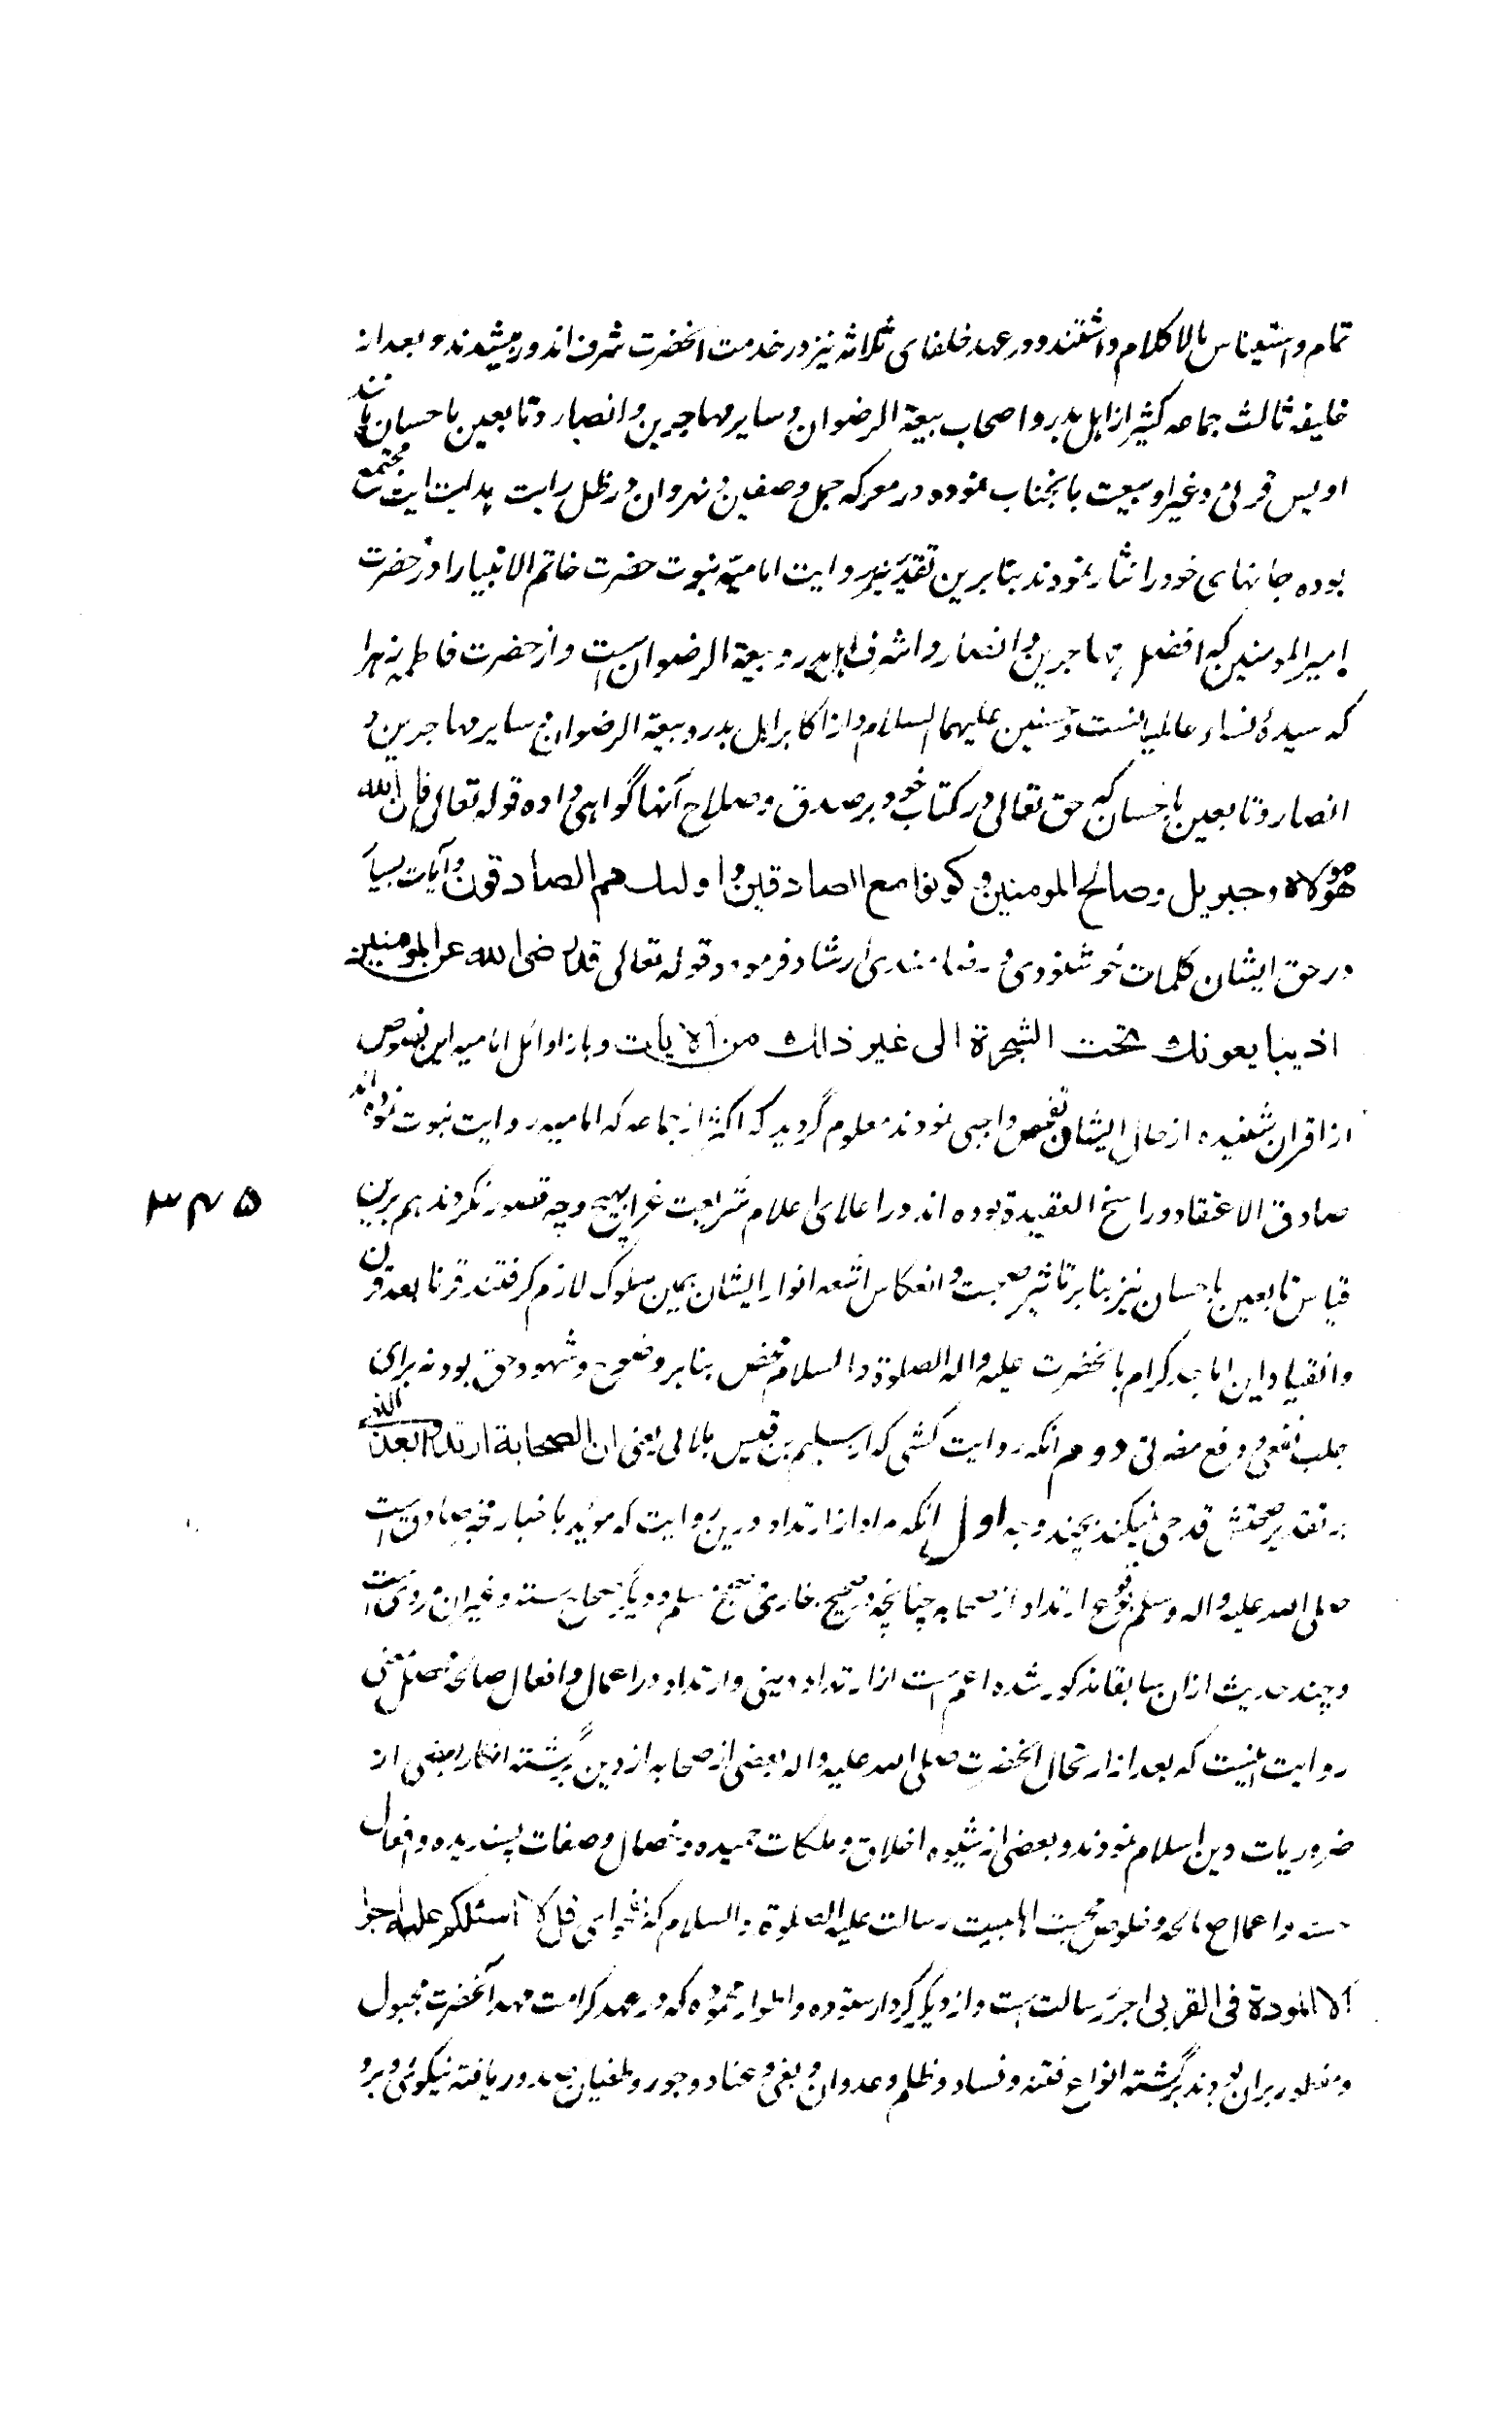 تمام و استیناس بالاکلام داشتند و در عهد خلفای ثلاثه نیز در خدمت انحضرت شرف اندوز میشدند و بعد از
خلیفه ثالث جماعه کثیر از اهل بدر و اصحاب بیعة الرضوان و سایر مهاجرین و انصار و تابعین باحسان مانند
اویس قرنی و غیر او بیعت بانجناب نموده در معرکه جمل و صفین و نهروان در ظل رایت هدایت ایت مجتمع
بوده جانهای خود را نثار نمودند بنابرین تقدیر نیز روایت امامیه نبوت حضرت خاتم الانبیا را از حضرت
امیر المومنین که افضل مهاجرین و انصار و اشرف اهل بدر و بیعة الرضوان است و از حضرت فاطمه زهرا
که سیدهٔ نساء عالمیانست و حسنین علیهما السلام و از اکابر اهل بدر و بیعة الرضوان و سایر مهاجرین و
انصار و تابعین باحسان که حق تعالی در کتاب خود بر صدق و صلاح آنها گواهی داده قوله تعالی فان الله
هو مولاه و جبریل و صالح المومنین و کونوا مع الصادقین و اولئک هم الصادقون و آیات بسیار
در حق ایشان کلمات خوشنودی و رضامندی ارشاد فرموده قوله تعالی لقد رضی الله عن المومنین
اذ یبایعونک تحت الشجرة الی غیر ذلک من الایات و باز اوائل امامیه این نصوص
از اقران شنیده از حال ایشان تفحص واجبی نمودند معلوم گردید که اکثر از جماعه که امامیه روایت نبوت نموده اند
صادق الاعتقاد و راسخ العقیدة بوده اند در اعلای اعلام شریعت غرا بهیچ وجه قصور نکردند هم برین
۳۴۵
قیاس تابعین باحسان نیز بنابر تاثیر صحبت و انعکاس اشعه انوار ایشان همین سلوک لازم گرفتند قرنا بعد قرن
و انقیاد این اماجد کرام بانحضرت علیه و اله الصلوة و السلام محض بنابر وضوح و شهود حق بود نه برای
جلب نفعی و دفع مضرتی دوم انکه روایت کشی که از سلیم بن قیس هلالی یعنی ان الصحابة ارتدوا بعد النبی
بر تقدیر صحتش قدحی نمیکند بچند وجه اول انکه مراد از ارتداد درین روایت که موید باخبار مخبر صادق است
صلی الله علیه و اله و سلم بوقوع ارتداد از صحابه چنانچه در صحیح بخاری و صحیح مسلم و دیگر صحاح سته و غیر ان مروی است
و چند حدیث ازان سابقا مذکور شده اعم است از ارتداد دینی و ارتداد در اعمال و افعال صالحه حاصل معنی
روایت اینست که بعد از ارتحال انحضرت صلی الله علیه و اله بعضی از صحابه از دین برگشته انکار بعضی از
ضروریات دین اسلام نمودند و بعضی از شیوه اخلاق و ملکات حمیده و خصال و صفات پسندیده و افعال
حسنه و اعمال صالحه و خلوص محبت اهلبیت رسالت علیه الصلوة و السلام که بفحوای قل لا اسئلکم علیه اجرا
الا المودة فی القربی اجر رسالت است و از دیگر کردار ستوده و اطوار محموده که در عهد کرامت مهد آنحضرت مجبول
و مفطور بران بودند برگشته انواع فتنه و فساد و ظلم و عدوان و بغی و عناد و جور و طغیان صدور یافته نیکوئی و برو